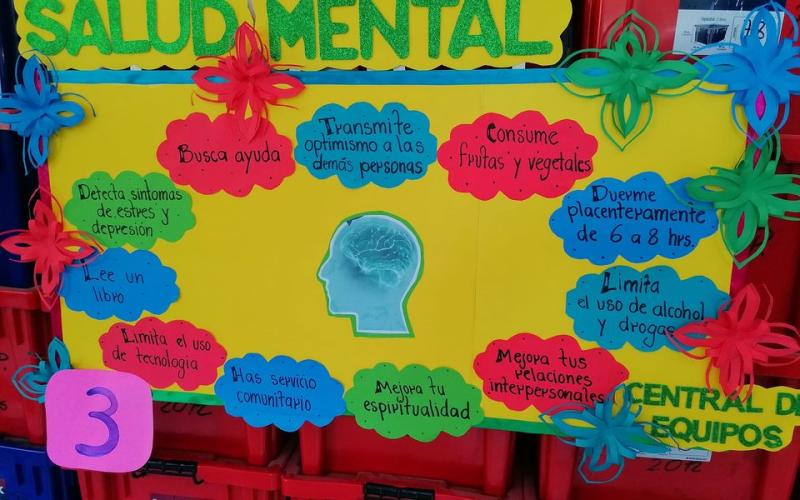 SALUD MENTAL
Busca ayuda
Transmite
optimismo a las
demás personas
Consume
frutas y vegetales
Detecta sintomas
de estres y
depresión
Duerme
placenteramente
de 6 a 8 hrs.
Lee un
libro
Limita
el uso de alcohol
y drogas
Limita el uso
de tecnologia
Has servicio
comunitario
Mejora tu
espiritualidad
Mejora tus
relaciones
interpersonales
3
CENTRAL DE
EQUIPOS
2012
2012